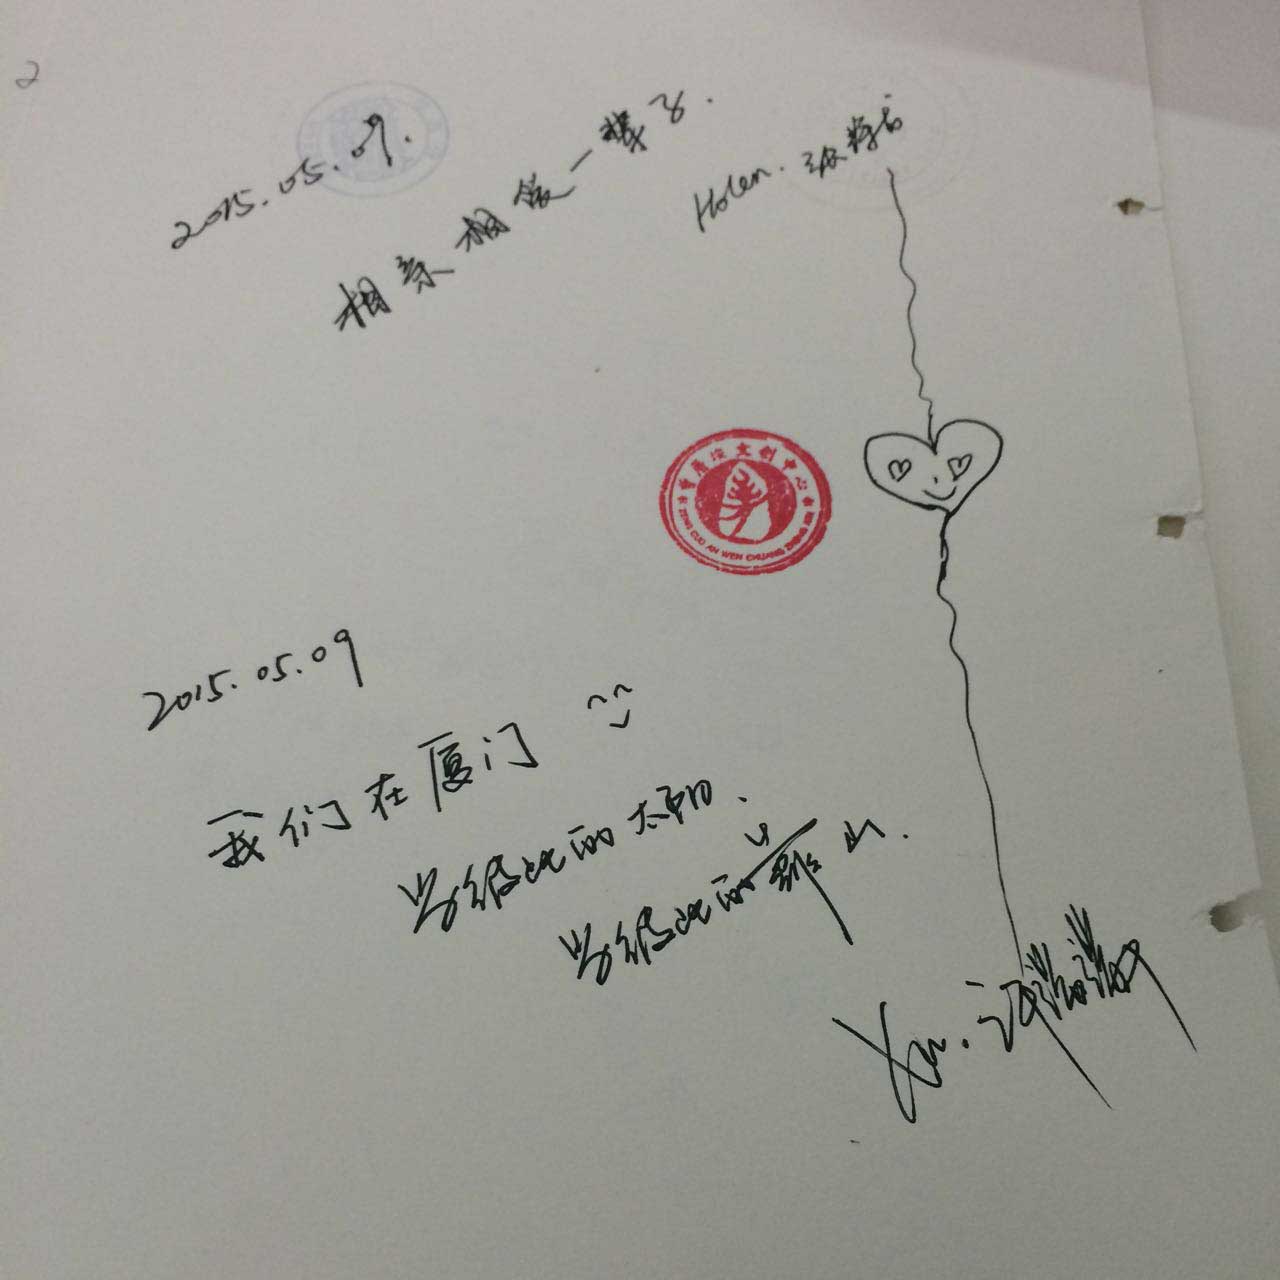 2
2015.05.09.
相亲相爱一辈子.
Helen.
曾厝垵文创中心
ZENG CUO AN WEN CHUANG ZHONG XIN
2015.05.09
我们在厦门
当彼此的太阳.
当彼此的靠山.